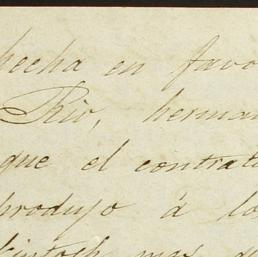 hecha en favo
Rio, herman
que el contrat
produjo á lo
kintosh mas q